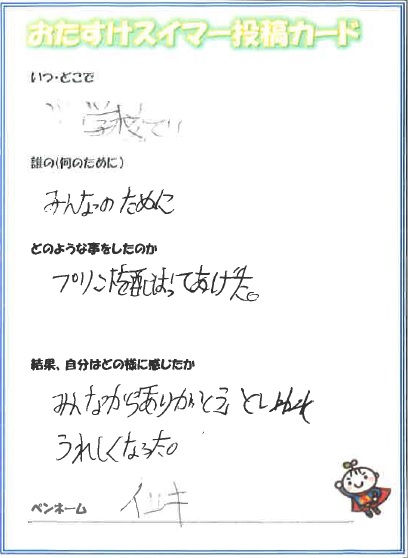 おたすけスイマー投稿カード
いつ・どこで
学校で
誰の(何のために)
みんなのために
どのような事をしたのか
プリントを配ってあげた。
結果、自分はどの様に感じたか
みんなからありがとうといわれ
うれしくなった。
ペンネーム イツキ